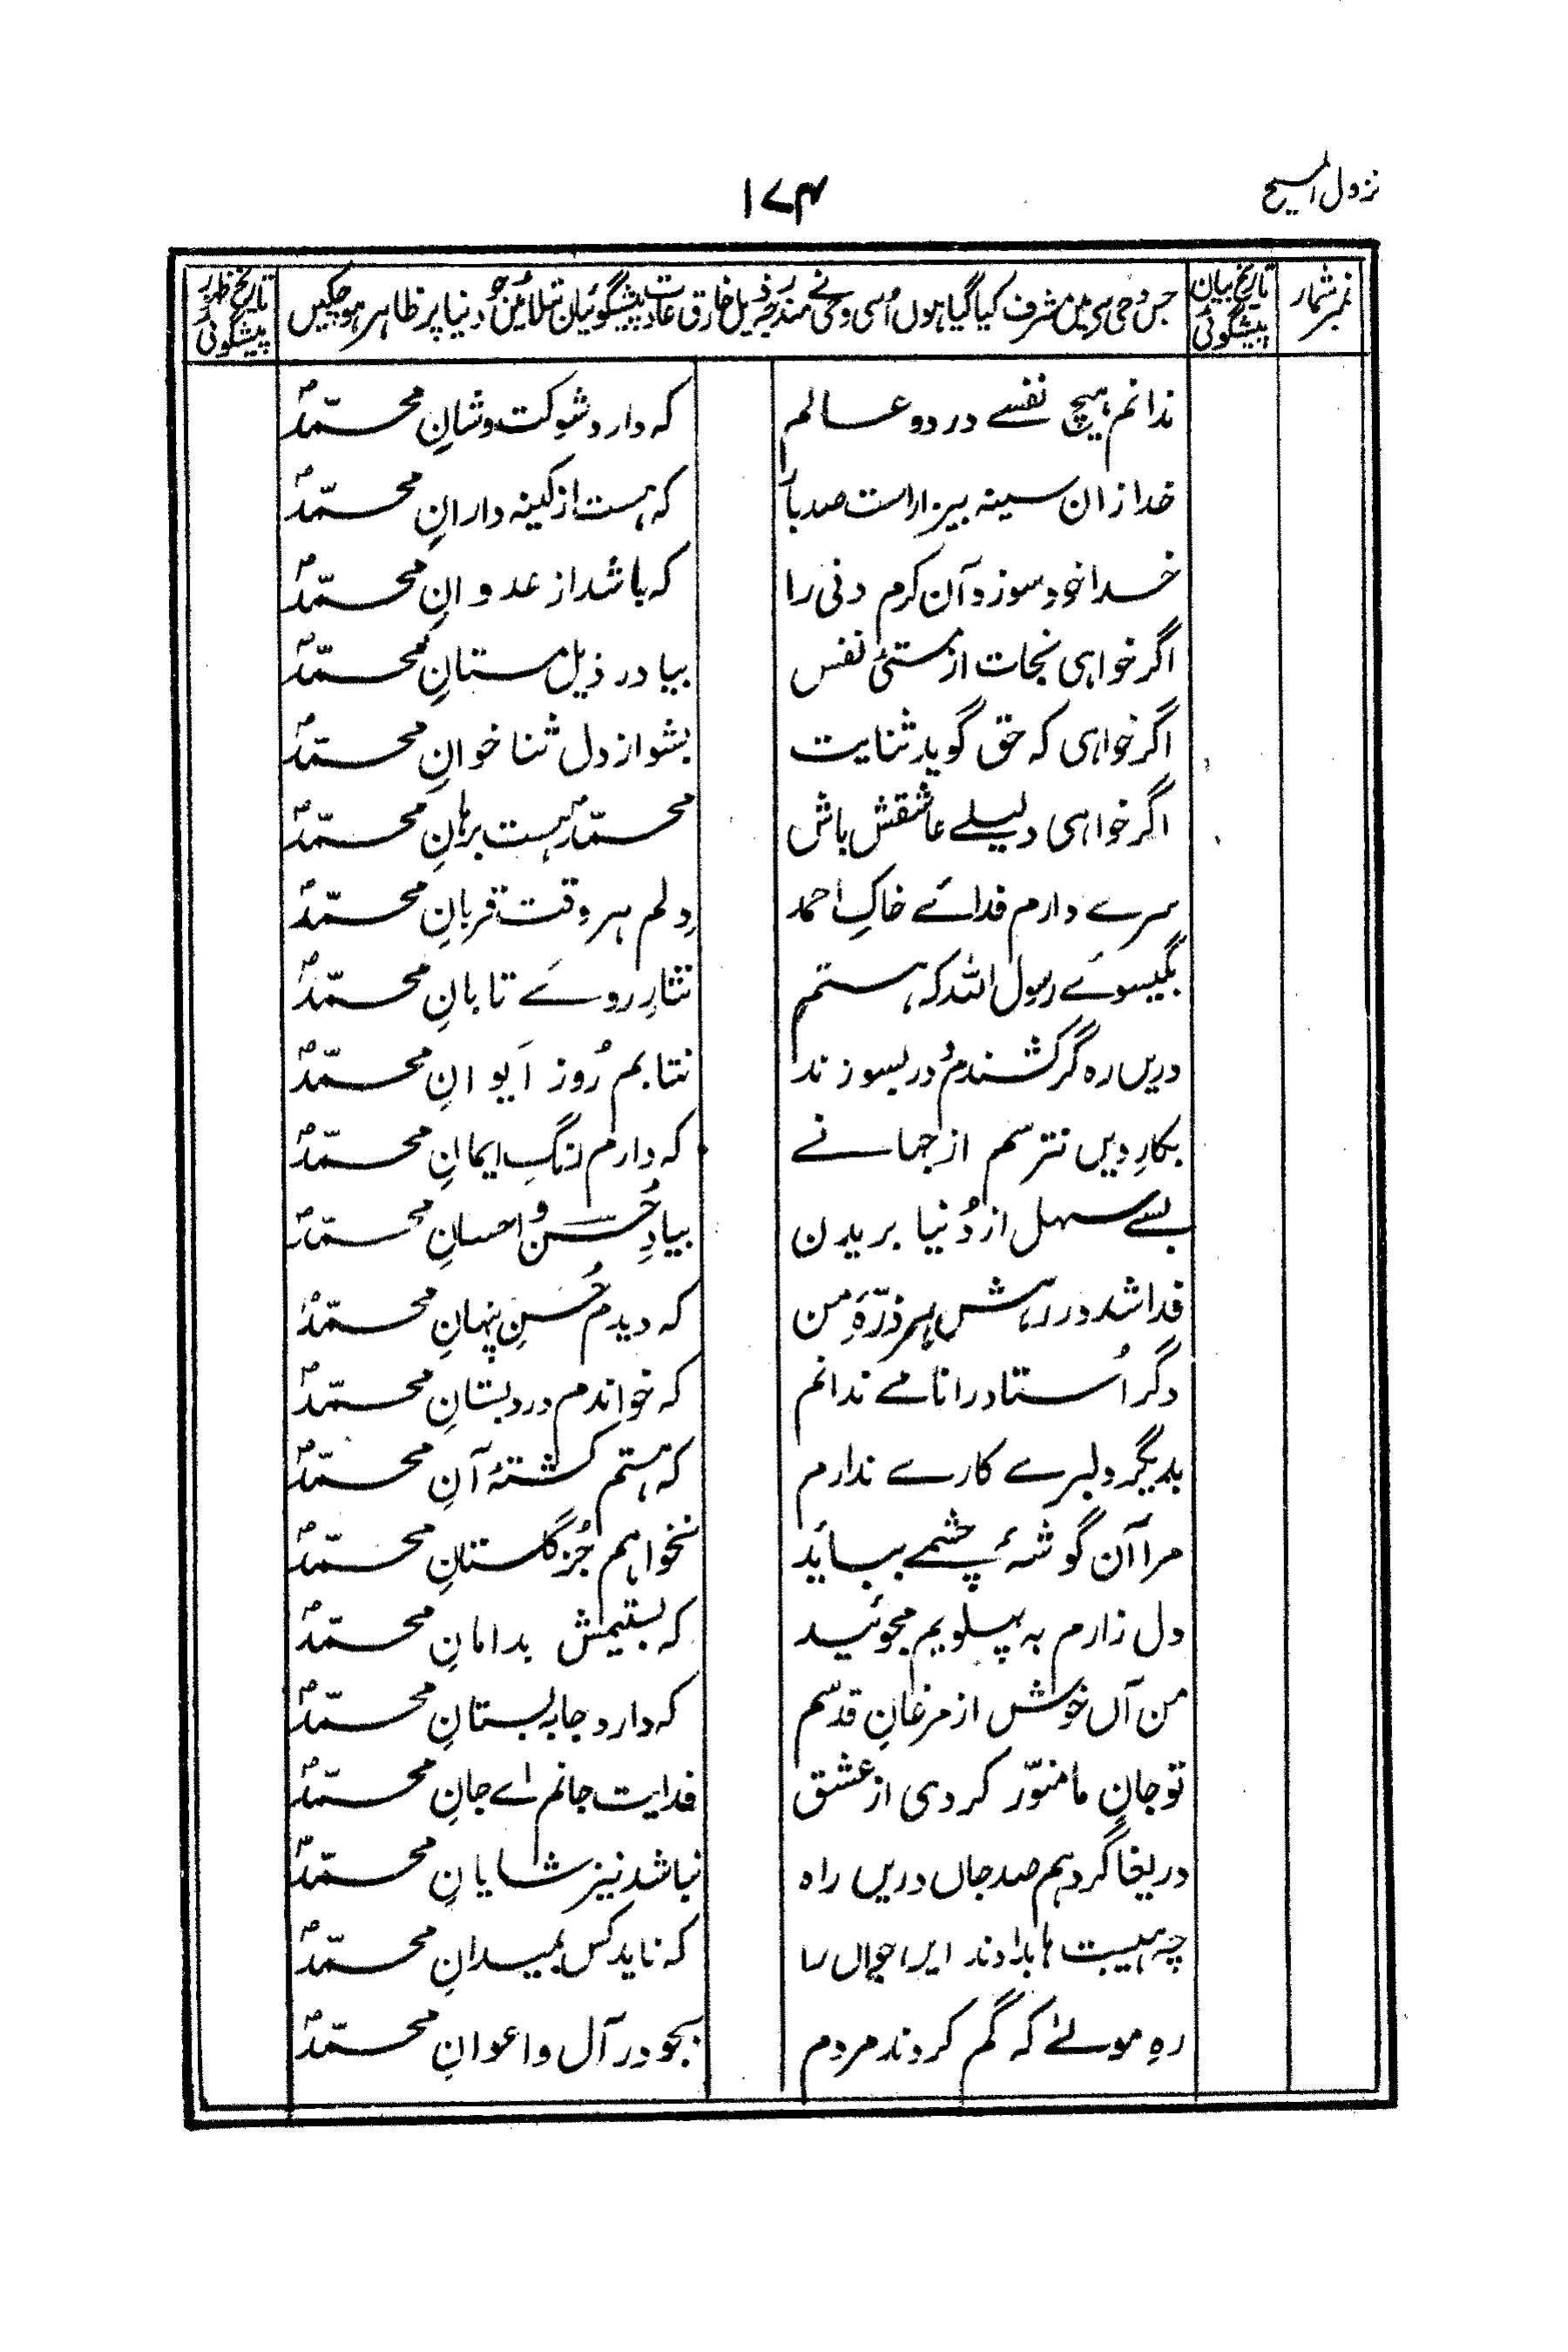 نزول المسیح
۱۷۴
نمبر شمار
تاریخ بیان پیشگوئی
جس وحی سے میں مشرف کیا گیا ہوں اُسی وحی نے مندرجہ ذیل خارق عادت پیشگوئیاں بتلائیں جو دنیا پر ظاہر ہو چکیں
تاریخ ظہور پیشگوئی
ندانم ہیچ نفسے در دو عالم که دارد شوکت و شانِ محمدؐ
خدا زان سینه بیزار است صدبار که ہست از کینه دارانِ محمدؐ
خدا خود سوزد آن کرم دنی را که باشد از عدوانِ محمدؐ
اگر خواہی نجات از مستئ نفس بیا در ذیل مستانِ محمدؐ
اگر خواہی که حق گوید ثنایت بشو از دل ثنا خوانِ محمدؐ
اگر خواہی دلیلے عاشقش باش محمدؐ ہست برہانِ محمدؐ
سرے دارم فدائے خاکِ احمد دِلم ہر وقت قربانِ محمدؐ
بگیسوئے رسول اللہ که ہستم نثارِ روئے تابانِ محمدؐ
دریں ره گر کشندم ور بسوزند نتابم رُوز اَیوانِ محمدؐ
بکارِ دیں نترسم از جہانے که دارم رنگِ ایمانِ محمدؐ
بسے سہل از دُنیا بریدن بیادِ حُسن و احسانِ محمدؐ
فدا شد در رہش ہر ذرّهٔ من که دیدم حُسنِ پنہانِ محمدؐ
دگر اُستاد را نامے ندانم که خواندم در دبستانِ محمدؐ
بدیگر دلبرے کارے ندارم که ہستم کشتهٔ آنِ محمدؐ
مرا آن گوشهٔ چشمے بباید نخواہم جُز گلستانِ محمدؐ
دل زارم به پہلویم مجوئید که بستیمش بدامانِ محمدؐ
من آں خوش از مرغانِ قدسم که دارد جا به بستانِ محمدؐ
تو جانِ ما منوّر کردی از عشق فدایت جانم اے جانِ محمدؐ
دریغا گر دہم صد جاں دریں راه نباشد نیز شایانِ محمدؐ
چه ہیبت ہا بدادند ایں جواں را که ناید کس بمیدانِ محمدؐ
رهِ مولےٰ که گم کردند مردم بجو در آل و اعوانِ محمدؐ